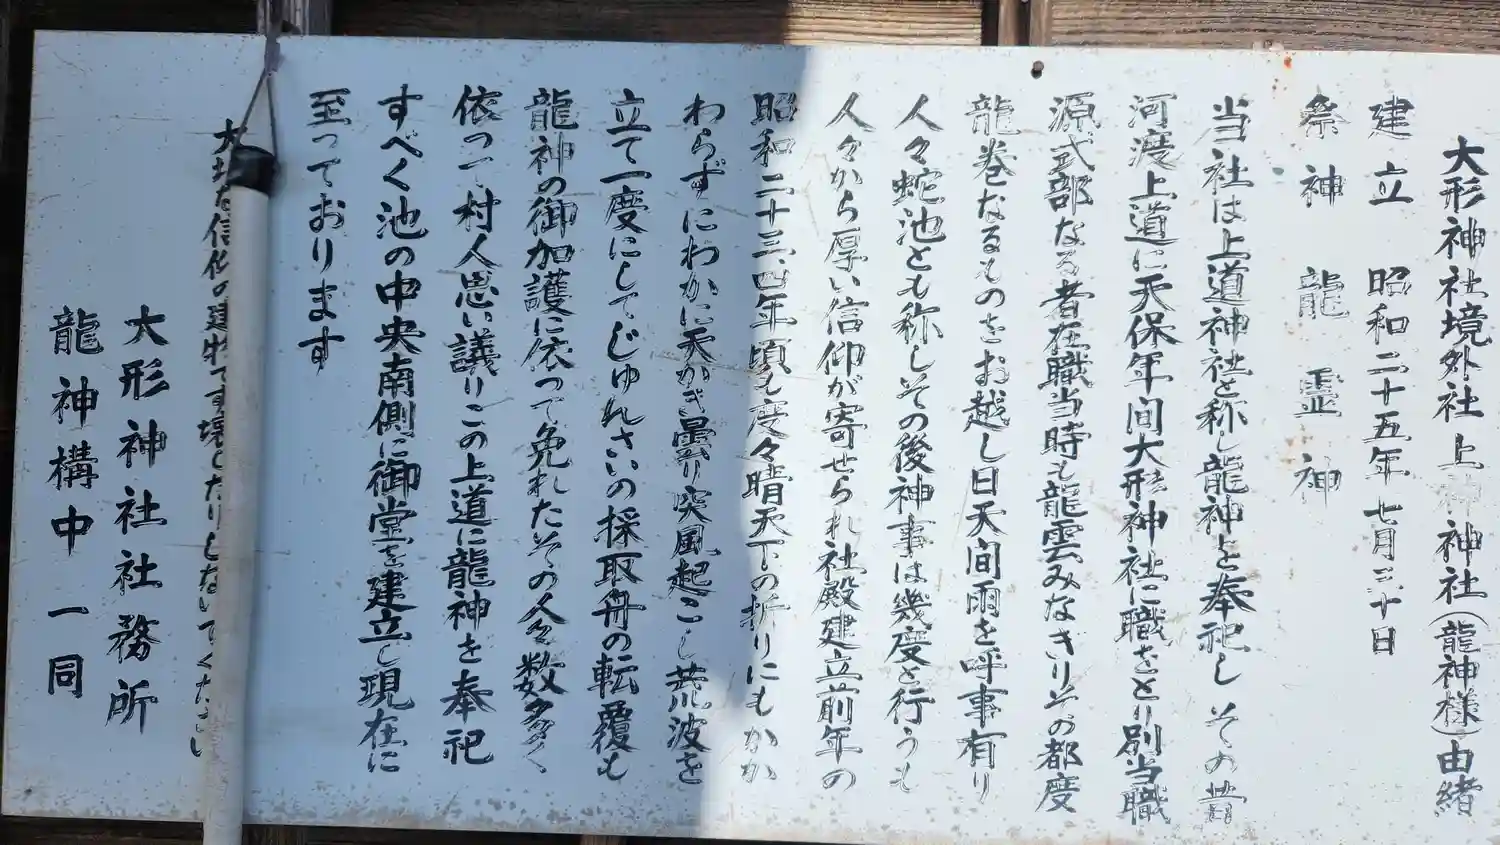 大形神社境外社 上神神社(龍神様)由緒
建立 昭和二十五年七月三十日
祭神 龍霊神
当社は上道神社と称し龍神を奉祀し その昔
河渡上道に天保年間大形神社に職をとり別当職
源式部なる者在職当時も龍雲みなぎりその都度
龍巻なるものをお越し日天間雨を呼事有り
人々蛇池とも称しその後神事は幾度を行うも
人々から厚い信仰が寄せられ社殿建立前年の
昭和二十三、四年頃も度々晴天下の折りにもかか
わらずにわかに天かき曇り突風起こし荒波を
立て一度にしてじゅんさいの採取舟の転覆も
龍神の御加護に依って免れたその人々数多く
依って村人思い議りこの上道に龍神を奉祀
すべく池の中央南側に御堂を建立し現在に
至っております
大切な信仰の建物です壊したりしないでください
大形神社社務所
龍神構中一同